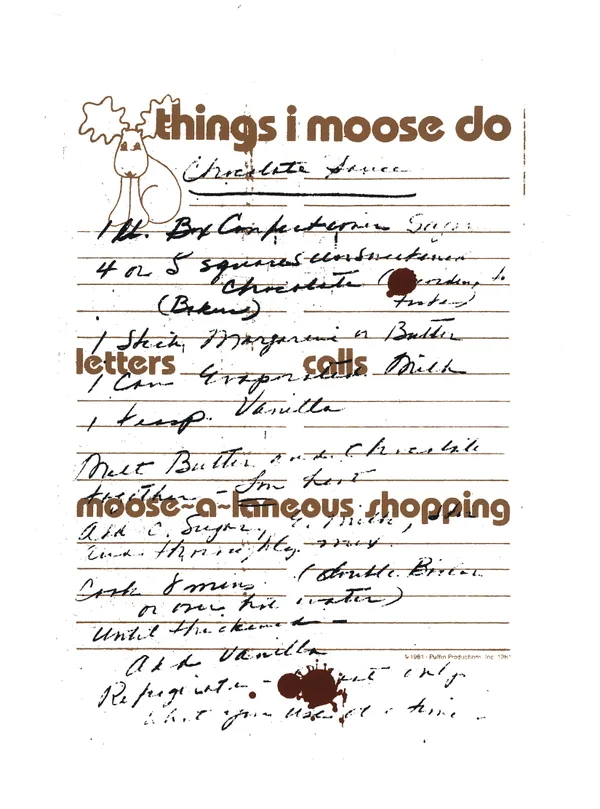 things i moose do
Chocolate Sauce
1 lb. Box Confectioners Sugar
4 or 5 squares unsweetened
Chocolate ( to
(Bakers) taste)
1 Stick Margarine or Butter
letters calls
1 Can Evaporated Milk
1 teasp. Vanilla
Melt Butter and Chocolate
together - low heat
moose~a~laneous shopping
Add C. Sugar, E. Milk,
and thoroughly mix
Cook 8 mins (double Boiler
or over hot water)
Until thickened -
©1981 - Puffin Productions, Inc.
Add Vanilla
Refrigerate - only
what you use at a time -